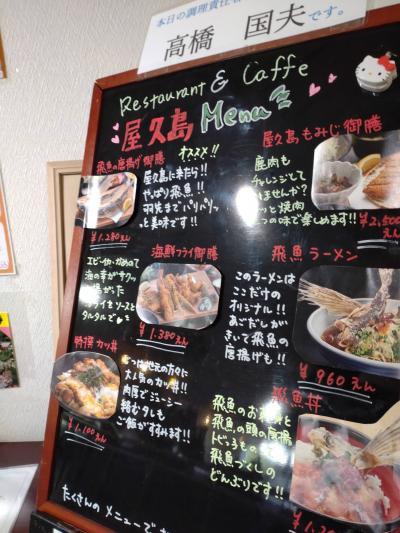 本日の調理責任者
高橋 国夫 です。
Restaurant & Caffe
屋久島 Menu
飛魚の唐揚げ御膳
オススメ!!
屋久島に来たら!!
やっぱり飛魚!!
羽先までパリパリッ
と美味です!!
¥1.280えん
屋久島もみじ御膳
鹿肉も
チャレンジして
みませんか?
焼肉
つの味で楽しめます!!
¥2,500えん
海鮮フライ御膳
エビ・イカ・
海の幸がサクッ
フライをソースと
タルタルで
¥1.380えん
飛魚ラーメン
このラーメンは
ここだけの
オリジナル!!
あごだしが
きいて飛魚の
唐揚げも!!
¥960えん
特撰カツ丼
地元の方々に
大人気のカツ丼!!
肉厚でジューシー
絡むタレも
ご飯がすすみます!!
¥1.100えん
飛魚丼
飛魚のお刺身と
飛魚の頭の唐揚
飛魚づくしの
どんぶりです!!
たくさんのメニューで